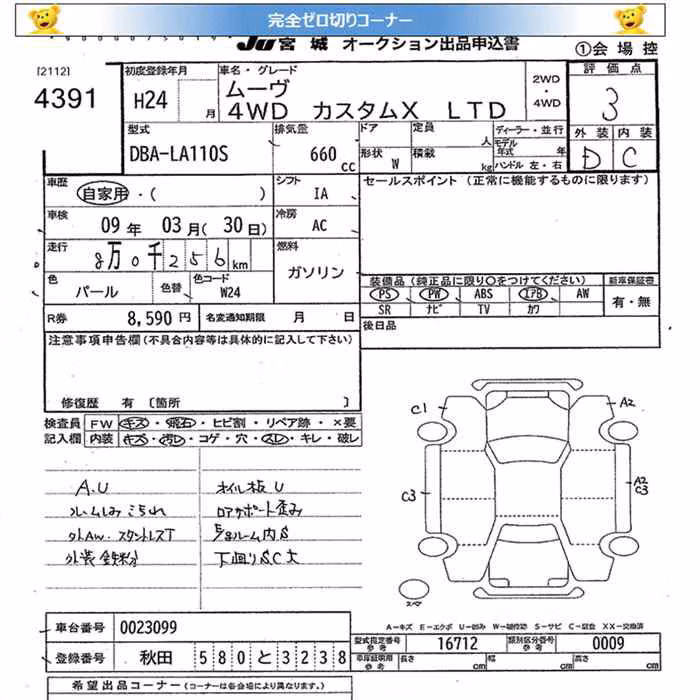 完全ゼロ切りコーナー
JU 宮 城 オークション出品申込書 ①会場控
[2112]
4391
初度登録年月
H24 月
車名・グレード
ムーヴ
4WD カスタムX LTD
2WD
・
4WD
評価点
3
外装 内装
D C
型式
DBA-LA110S
排気量
660 cc
ドア 定員 人
形状 W 積載 kg
ディーラー・並行
モデル年式 年
ハンドル 左・右
車歴 自家用・( )
シフト IA
車検 09年 03月(30日)
冷房 AC
走行 8万0千256km
燃料 ガソリン
色 パール 色替 色コード W24
R券 8,590円 名変通知期限 月 日
セールスポイント (正常に機能するものに限ります)
装備品(純正品に限り○をつけてください) 新車保証書
PS PW ABS エアB AW 有・無
SR ナビ TV カワ
後日品
注意事項申告欄(不具合内容等は具体的に記入して下さい)
修復歴 有 〔箇所 〕
検査員 FW キズ・飛石・ヒビ割・リペア跡・×要
記入欄 内装 キズ・汚レ・コゲ・穴・スレ・キレ・破レ
A.U
ルームしみ こすれ
外AW. スタットレスT
外装鉄粉
オイル板U
ロアサポート歪み
ルーム内S
下回りSC大
C1
A2
C3
A2
C3
スペア
A−キズ E−エクボ U−凹み W−補修跡 S−サビ C−腐食 XX−交換済
車台番号 0023099
登録番号 秋田 580 と 3238
型式指定番号 参考 16712 類別区分番号 参考 0009
車庫証明用 参考 長さ cm 幅 cm 高さ cm
希望出品コーナー (コーナーは各会場により異なります。)